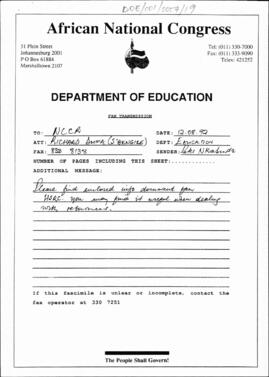 DOE/001/0057/19
African National Congress
51 Plein Street
Johannesburg 2001
P O Box 61884
Marshalltown 2107
Tel: (011) 330-7000
Fax: (011) 333-9090
Telex: 421252
DEPARTMENT OF EDUCATION
FAX TRANSMISSION
TO: NCCR DATE: 12.08.92
ATT: RICHARD DEPT: EDUCATION
FAX: 8138 SENDER:
NUMBER OF PAGES INCLUDING THIS SHEET:............
ADDITIONAL MESSAGE:
Please find enclosed info document from
HSRC. You may find it useful when dealing
with returnees.
If this facsimile is unclear or incomplete, contact the
fax operator at 330 7251
The People Shall Govern!